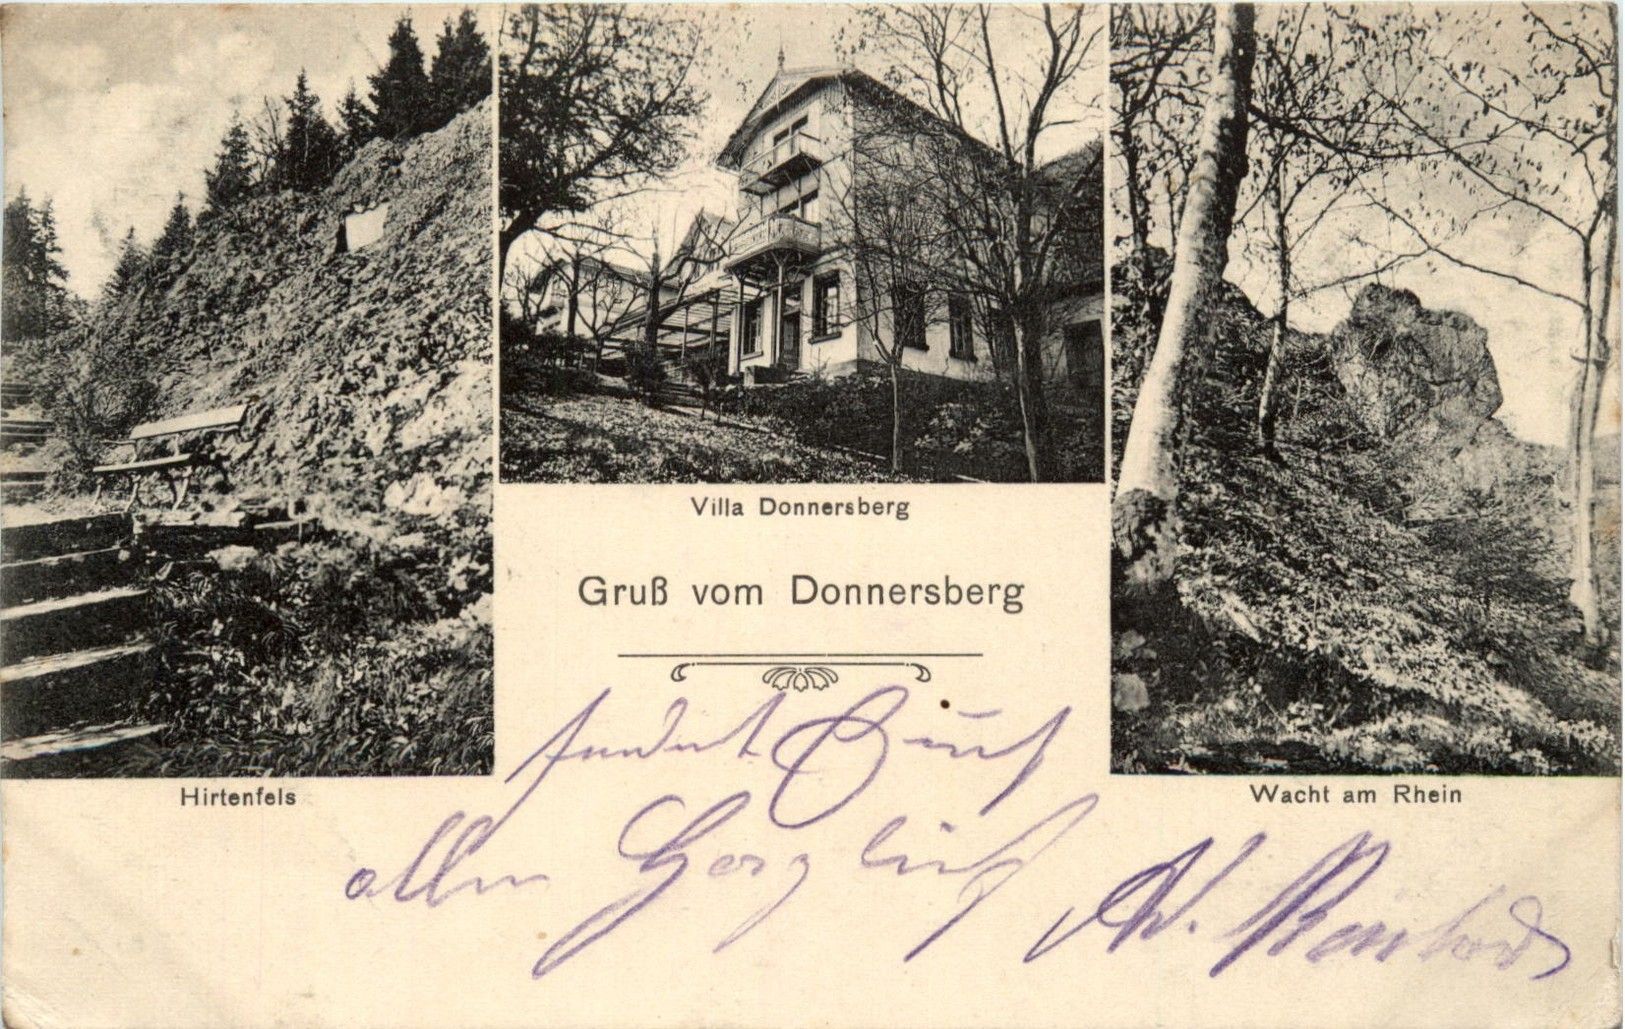 Villa Donnersberg
Gruß vom Donnersberg
Hirtenfels
Wacht am Rhein
sendet Euch
allen Herzlich